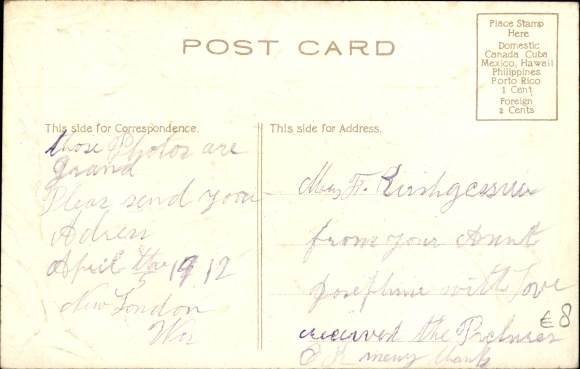 POST CARD
Place Stamp
Here
Domestic
Canada Cuba
Mexico, Hawaii
Philippines
Porto Rico
1 Cent
Foreign
2 Cents
This side for Correspondence.
those Photos are
grand
Pleas send your
Adress
April 1912
New London
Wis
This side for Address.
F.
from your Aunt
Josephine with love
received the Pictures
many thanks
€8